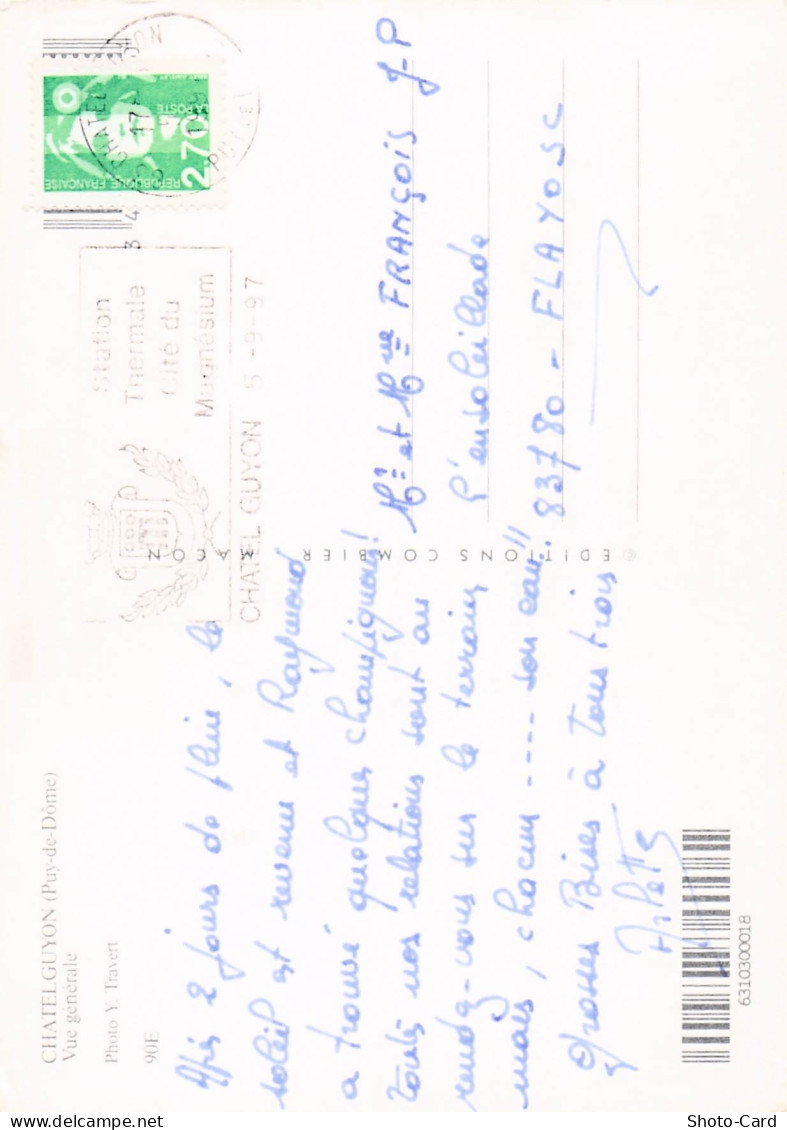 CHATELGUYON (Puy-de-Dôme)
Vue générale
Photo Y. Travert
90E
Après 2 jours de pluie, le
soleil est revenu et Raymond
a trouvé quelques champignons!
Toutes nos relations sont au
rendez-vous sur le terrain
mais, chacun ---- son eau!!
Grosses Bises à tous trois
© EDITIONS COMBIER MACON
2,70
LA POSTE
REPUBLIQUE FRANÇAISE
Station
Thermale
Cité du
Magnésium
CHATEL GUYON 5-9-97
Mr et Mme FRANÇOIS J-P
L'ensoleillade
83780 - FLAYOSC
6310300018
Shoto-Card